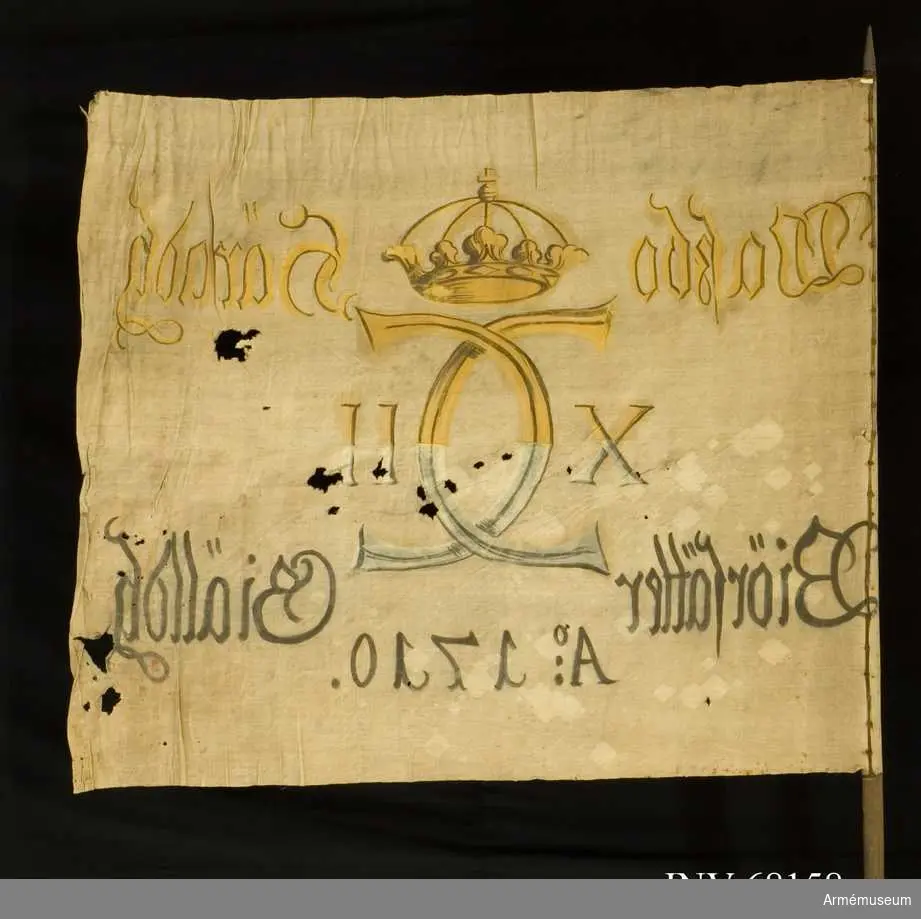 Waßbo Härädh
X II
Biörsätter Giälldh
Ao: 1710.
INV 68158
Armémuseum